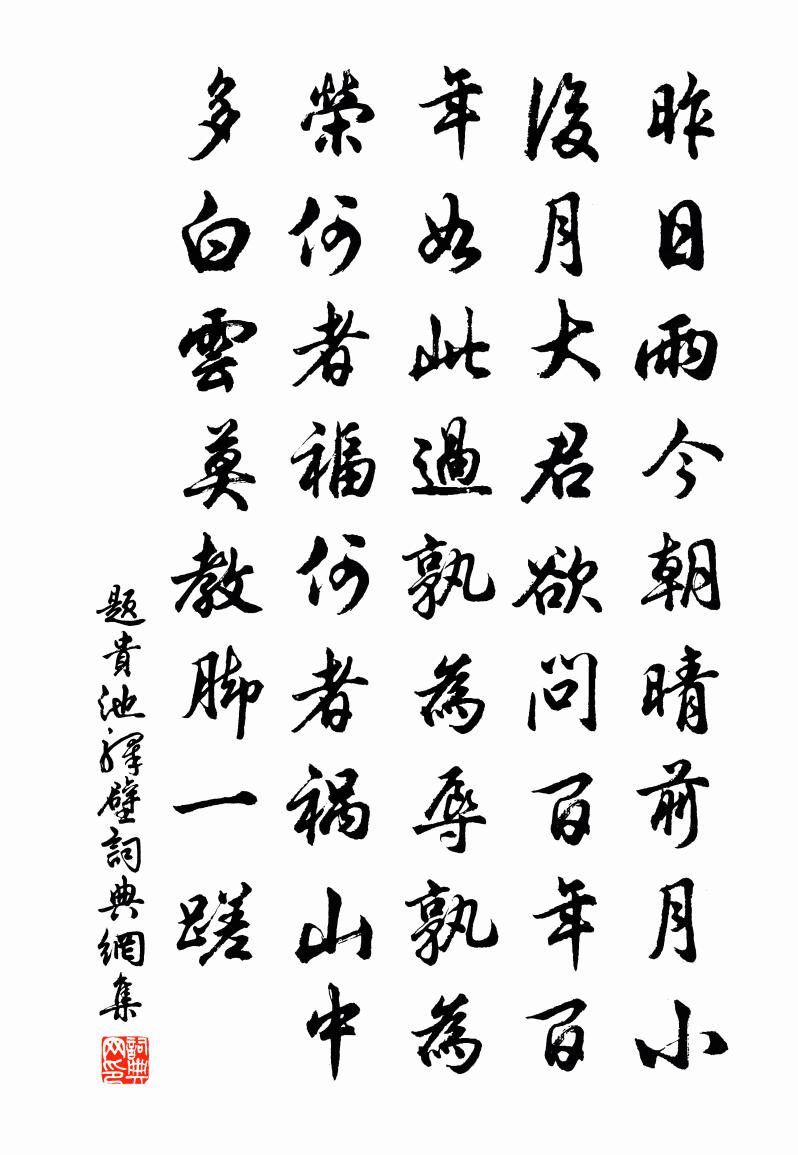 昨日雨今朝晴前月小
後月大君欲問百年百
年如此過孰為辱孰為
榮何者福何者禍山中
多白雲莫教脚一蹉
題貴池驛壁詞典網集
詞典网印